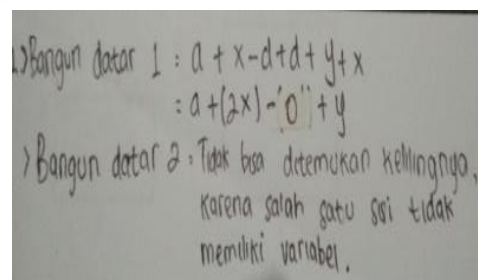 1.) Bangun datar 1 : a + x - d + d + y + x
: a + (2x) - "0" + y
> Bangun datar 2 : Tidak bisa ditemukan kelilingnya,
karena salah satu sisi tidak
memiliki variabel.